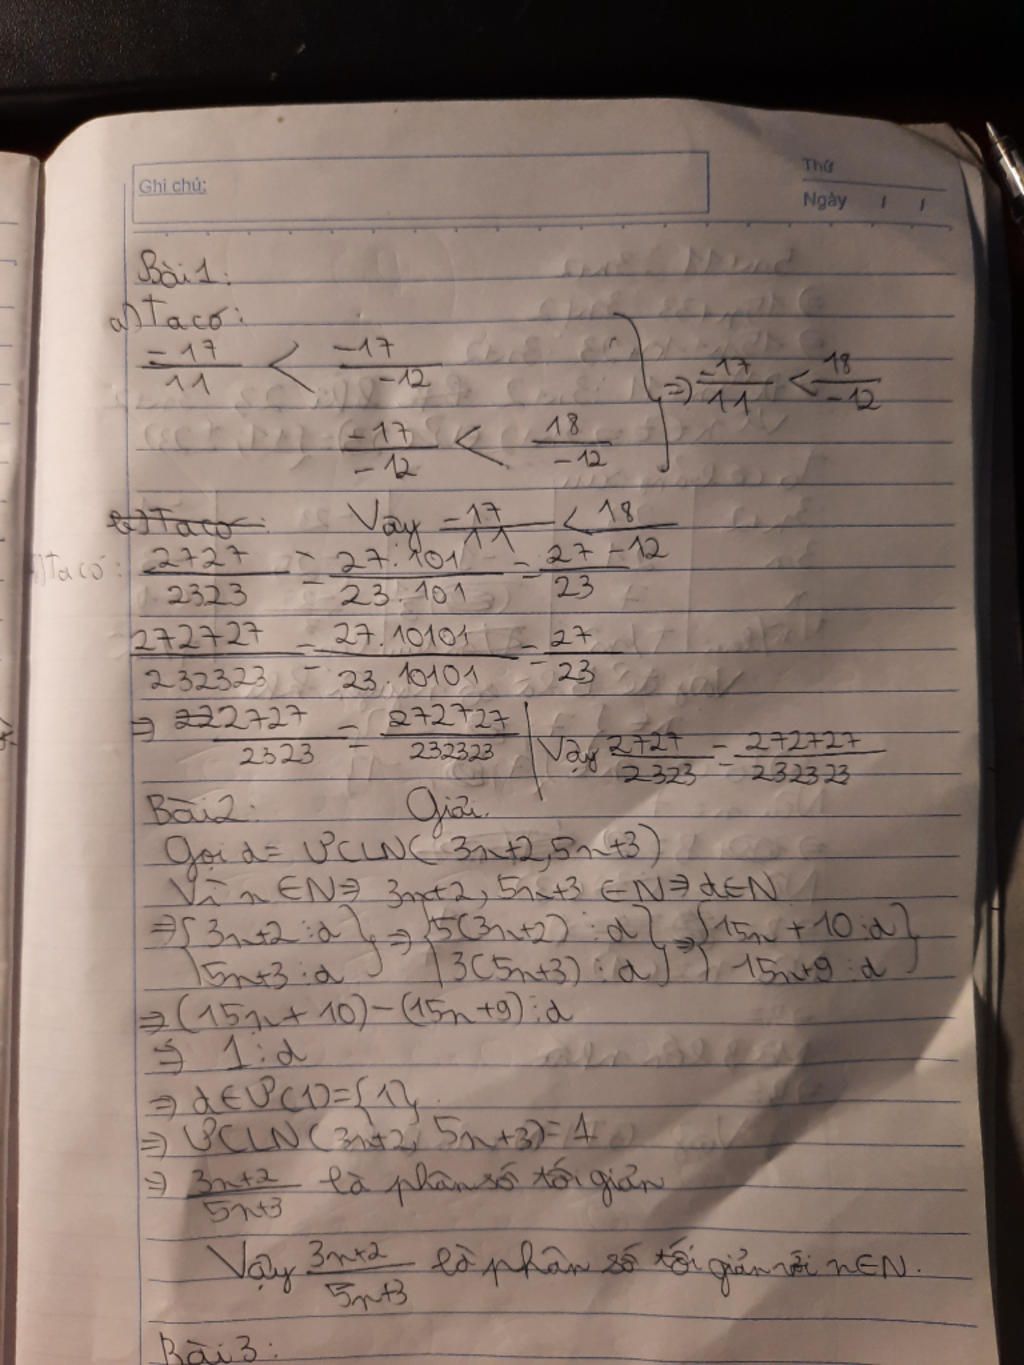 Ghi chú:
Thứ
Ngày / /
Bài 1:
a) Ta có:
-17/11 < -17/-12
-17/-12 < 18/-12
} => -17/11 < 18/-12
Vậy -17/11 < 18/-12
b) Ta có:
2727/2323 = 27.101/23.101 = 27/23
272727/232323 = 27.10101/23.10101 = 27/23
=> 2727/2323 = 272727/232323 | Vậy 2727/2323 = 272727/232323
Bài 2: Giải.
Gọi d = ƯCLN(3n+2, 5n+3)
Vì n ∈ N => 3n+2, 5n+3 ∈ N => d ∈ N
=> { 3n+2 ⋮ d } => { 5(3n+2) ⋮ d } => { 15n + 10 ⋮ d }
5n+3 ⋮ d 3(5n+3) ⋮ d 15n+9 ⋮ d
=> (15n + 10) - (15n + 9) ⋮ d
=> 1 ⋮ d
=> d ∈ Ư(1) = {1}
=> ƯCLN(3n+2, 5n+3) = 1
=> 3n+2/5n+3 là phân số tối giản
Vậy 3n+2/5n+3 là phân số tối giản với n ∈ N.
Bài 3: